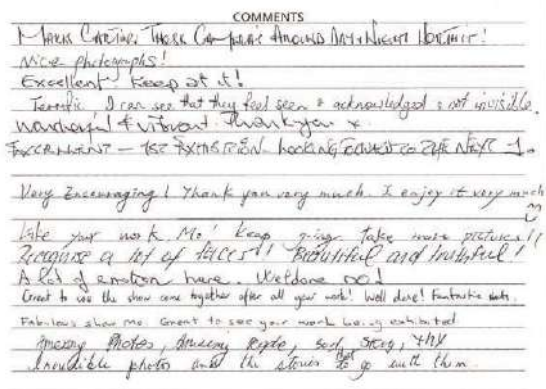 COMMENTS
Around Day & Night
Nice photographs!
Excellent! Keep at it!
Terrific. I can see that they feel seen & acknowledged & not invisible.
Wonderful & vibrant. Thank you x.
EXCELLENT - 1ST EXIBITION. LOOKING FORWARD TO THE NEXT 1.
Very Encouraging! Thank you very much. I enjoy it very much
Like your work, Mo! Keep going. Take more pictures!!
Recognise a lot of faces!! Beautiful and truthful!
A lot of emotion here. Well done
Great to see the show come together after all your work! Well done! Fantastic
Fabulous show Mo. Great to see your work being exhibited.
Amazing Photos, Amazing People,
Incredible photos and the stories to go with them